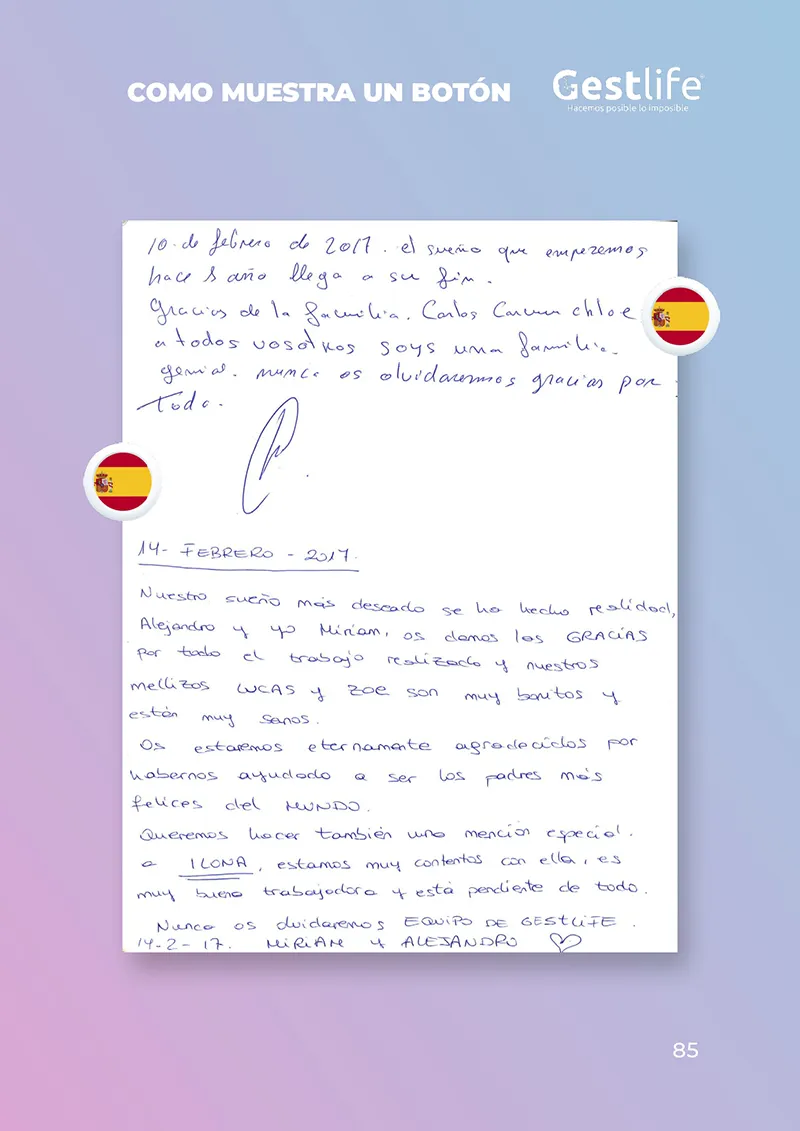 COMO MUESTRA UN BOTÓN
Gestlife
Hacemos posible lo imposible
10 de febrero de 2017. el sueño que empezemos
hace 1 año llega a su fin.
Gracias de la familia. Carlos Carmen chloe
a todos vosotros soys una familia
genial. nunca os olvidaremos gracias por
todo.
14- FEBRERO - 2017.
Nuestro sueño más deseado se ha hecho realidad,
Alejandro y yo Miriam, os damos las GRACIAS
por todo el trabajo realizado y nuestros
mellizos LUCAS y ZOE son muy bonitos y
están muy sanos.
Os estaremos eternamente agradecidos por
habernos ayudado a ser los padres más
felices del MUNDO.
Queremos hacer también una mención especial.
a ILONA, estamos muy contentos con ella, es
muy buena trabajadora y está pendiente de todo.
Nunca os olvidaremos EQUIPO DE GESTLIFE.
14-2-17. MIRIAM Y ALEJANDRO
85